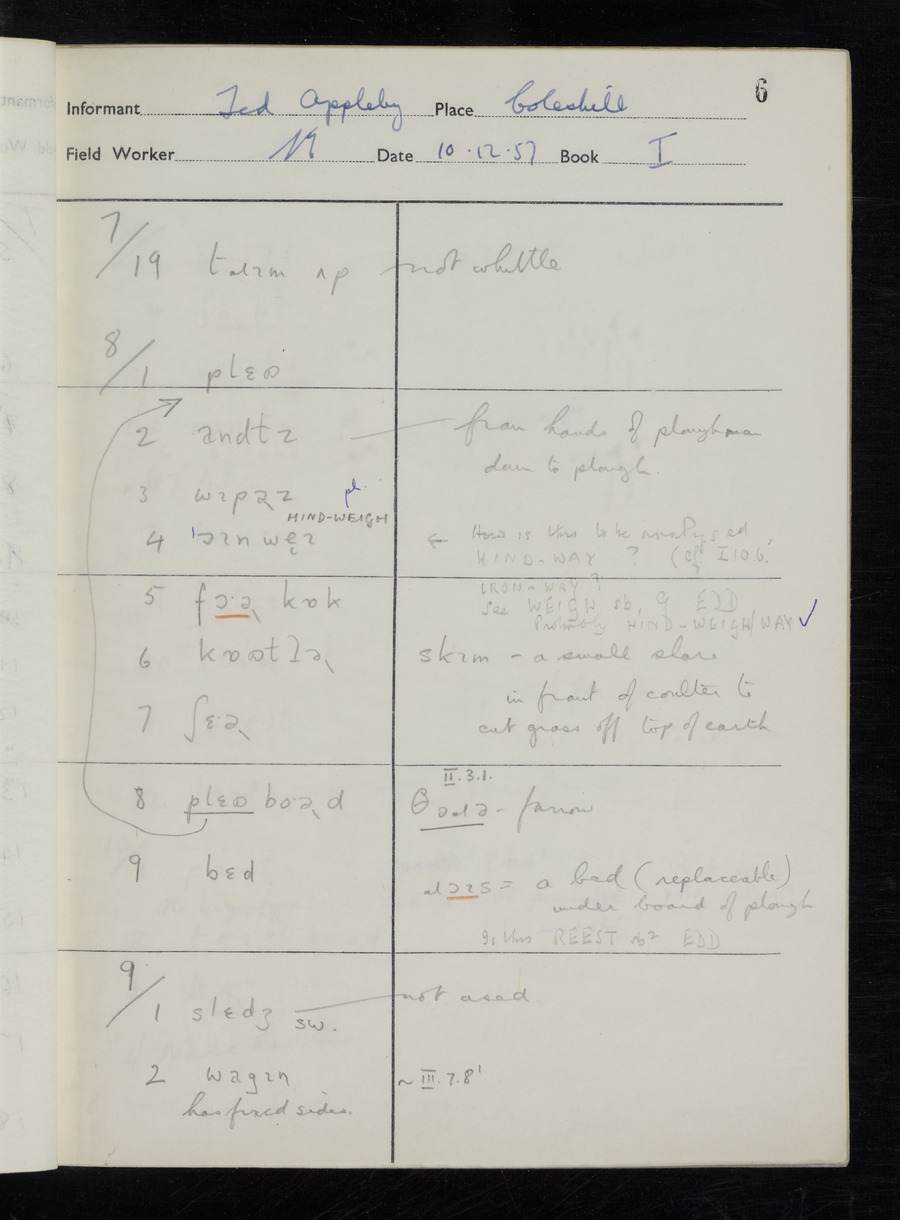 6
Informant Ted Appleby Place Coleshill
Field Worker Date 10.12.57 Book I
7/19 ʌp not whittle
8/1 plɛʊ
2 from hands of ploughman
down to plough.
3 pl.
HIND-WEIGH
4 ← How is this to be analysed,
HIND-WAY ? (cf. I 10.6.
IRON-WAY ?
5 kɒk
See WEIGH sb, 9 EDD
Probably HIND-WEIGH/WAY ✓
6 – a small share
in front of coulter to
7 ʃɛ·ə˞ cut grass off top of earth
II.3.1.
8 plɛʊ – furrow
9 bɛd
= a bed (replaceable)
under board of plough
Is this REEST sb² EDD
9/1 slɛdʒ sw. not used
2 ~ III.7.8'
has fixed sides.